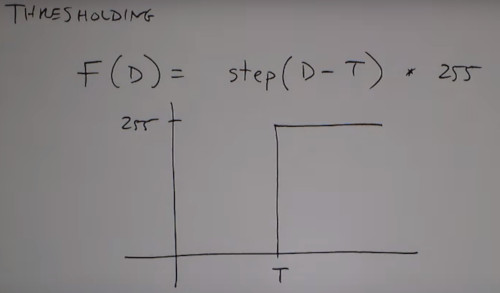 THRESHOLDING
F(D) = step(D-T) * 255
255
T